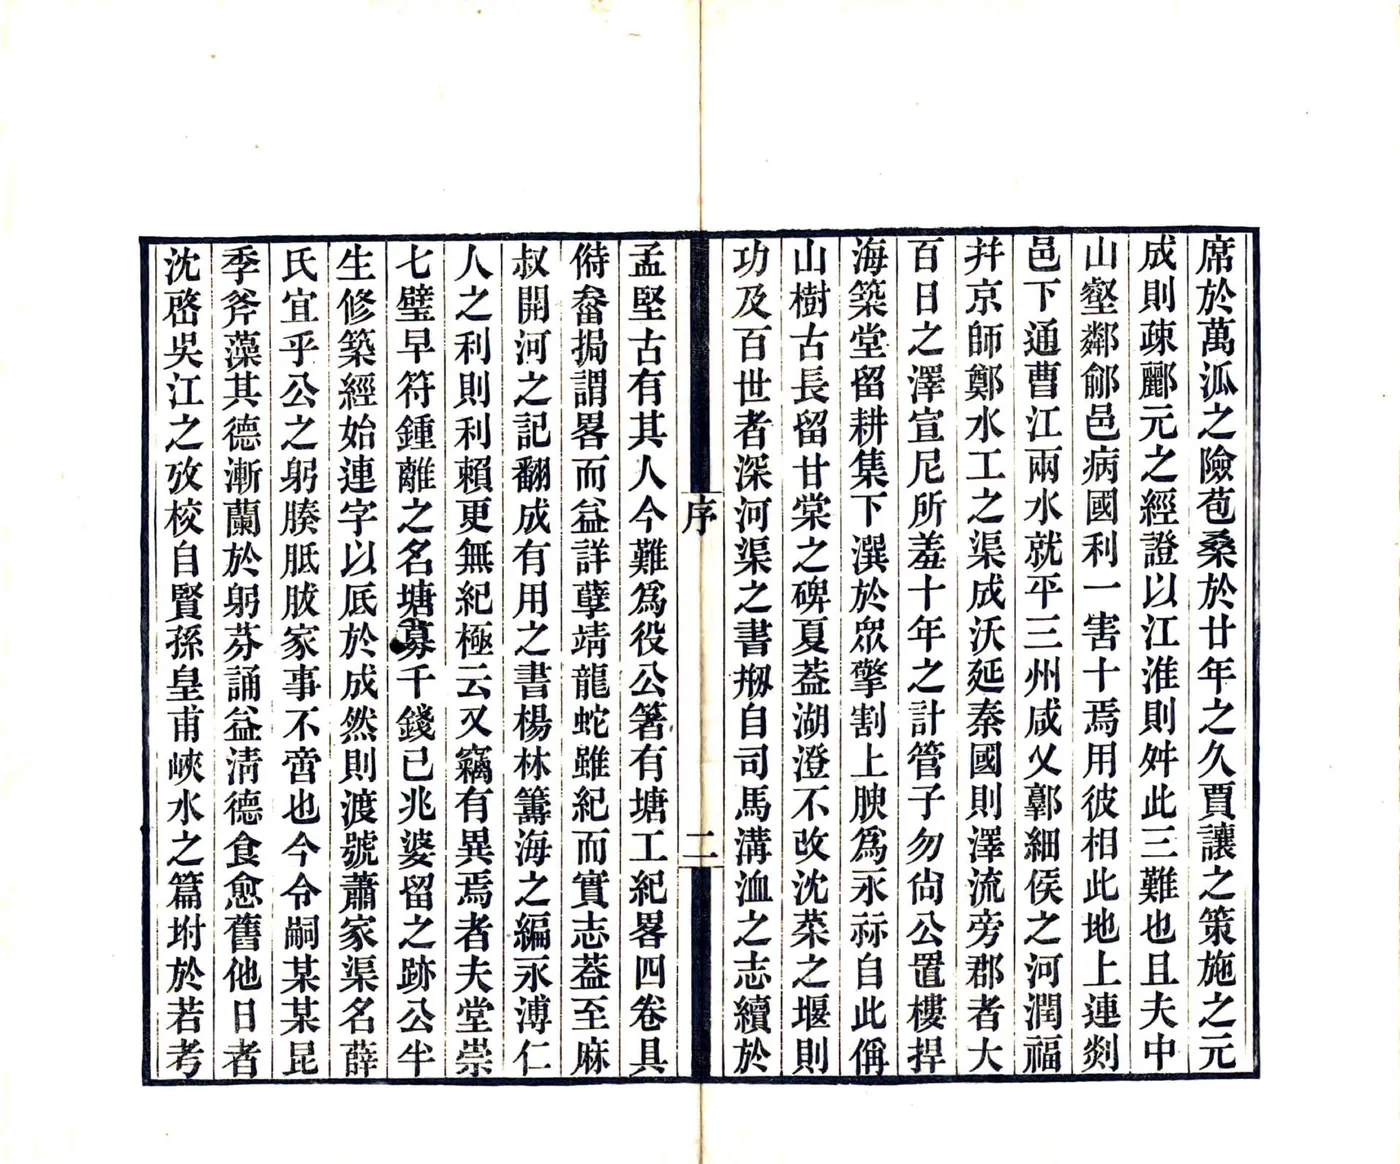 席於萬泒之險苞桑於廿年之久賈讓之策施之元
成則疎酈元之經證以江淮則舛此三難也且夫中
山壑鄰鄃邑病國利一害十焉用彼相此地上連剡
邑下通曹江兩水就平三州咸乂鄣細侯之河潤福
幷京師鄭水工之渠成沃延秦國則澤流旁郡者大
百日之澤宣尼所羞十年之計管子勿尙公置樓捍
海築堂留耕集下潠於眾擎割上腴爲永祘自此偁
山樹古長留甘棠之碑夏葢湖澄不改沈菜之堰則
功及百世者深河渠之書剏自司馬溝洫之志續於
序
二
孟堅古有其人今難爲役公箸有塘工紀畧四卷具
偫畚挶謂畧而益詳孽靖龍蛇雖紀而實志葢至麻
叔開河之記翻成有用之書楊林籌海之編永溥仁
人之利則利賴更無紀極云又竊有異焉者夫堂崇
七璧早符鍾離之名塘募千錢已兆婆留之跡公半
生修築經始連字以厎於成然則渡號蕭家渠名薛
氏宜乎公之躬腠胝胈家事不啻也今令嗣某某昆
季斧藻其德漸蘭於躬芬誦益淸德食愈舊他日者
沈啓吳江之攷校自賢孫皇甫峽水之篇坿於若考